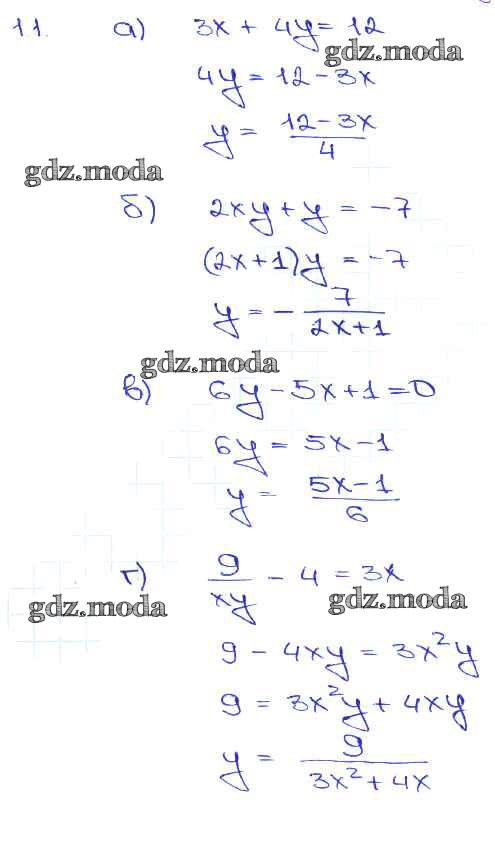 11. а) 3x + 4y = 12
gdz.moda
4y = 12 - 3x
y = \frac{12 - 3x}{4}
gdz.moda
б) 2xy + y = -7
(2x + 1)y = -7
y = -\frac{7}{2x + 1}
gdz.moda
в) 6y - 5x + 1 = 0
6y = 5x - 1
y = \frac{5x - 1}{6}
г) \frac{9}{xy} - 4 = 3x
gdz.moda gdz.moda
9 - 4xy = 3x²y
9 = 3x²y + 4xy
y = \frac{9}{3x² + 4x}